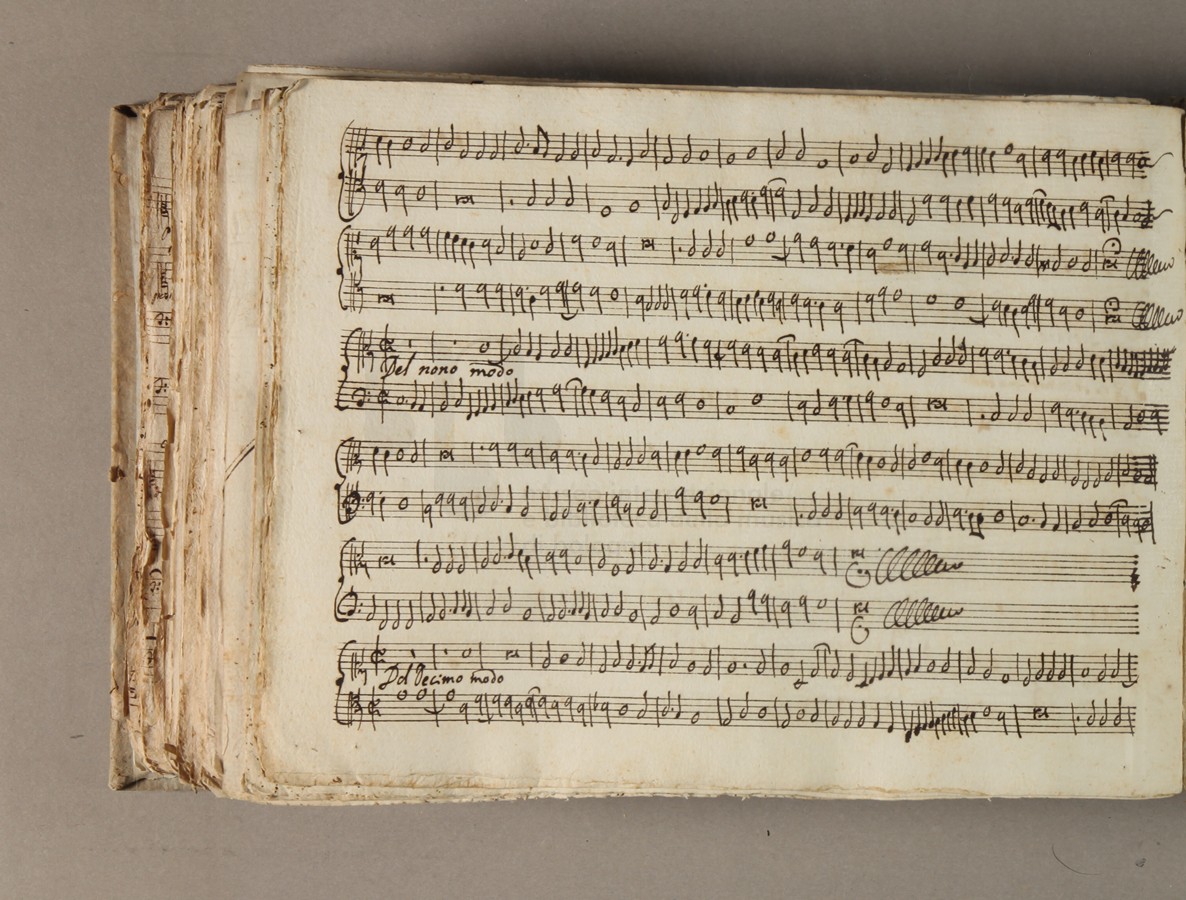 Del nono modo
Del Decimo modo